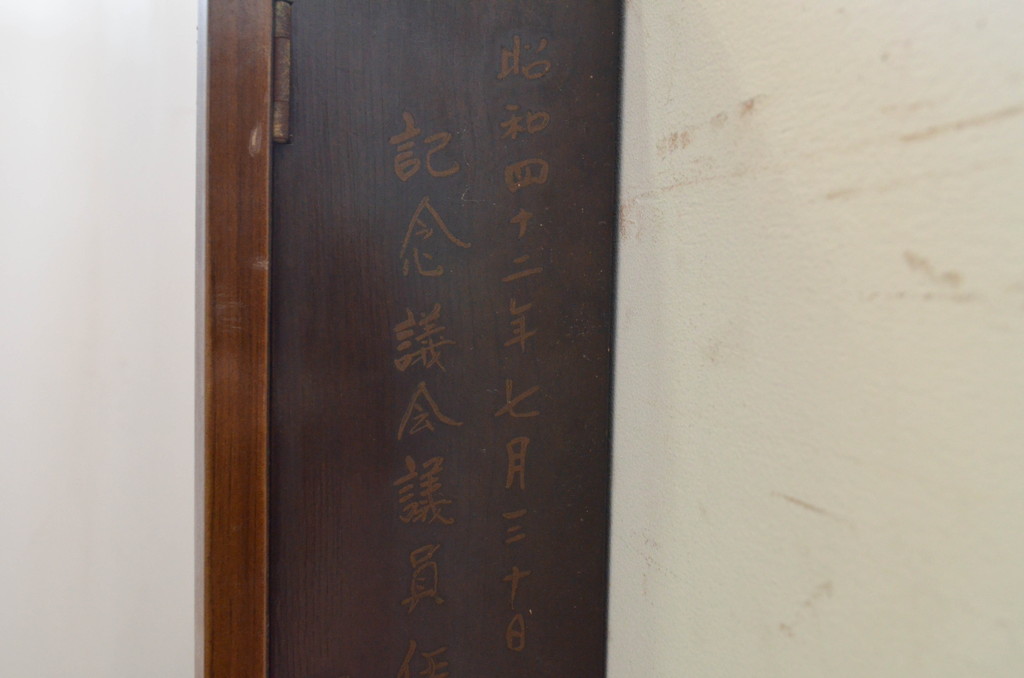 昭和四十二年七月三十日
記念議会議員任